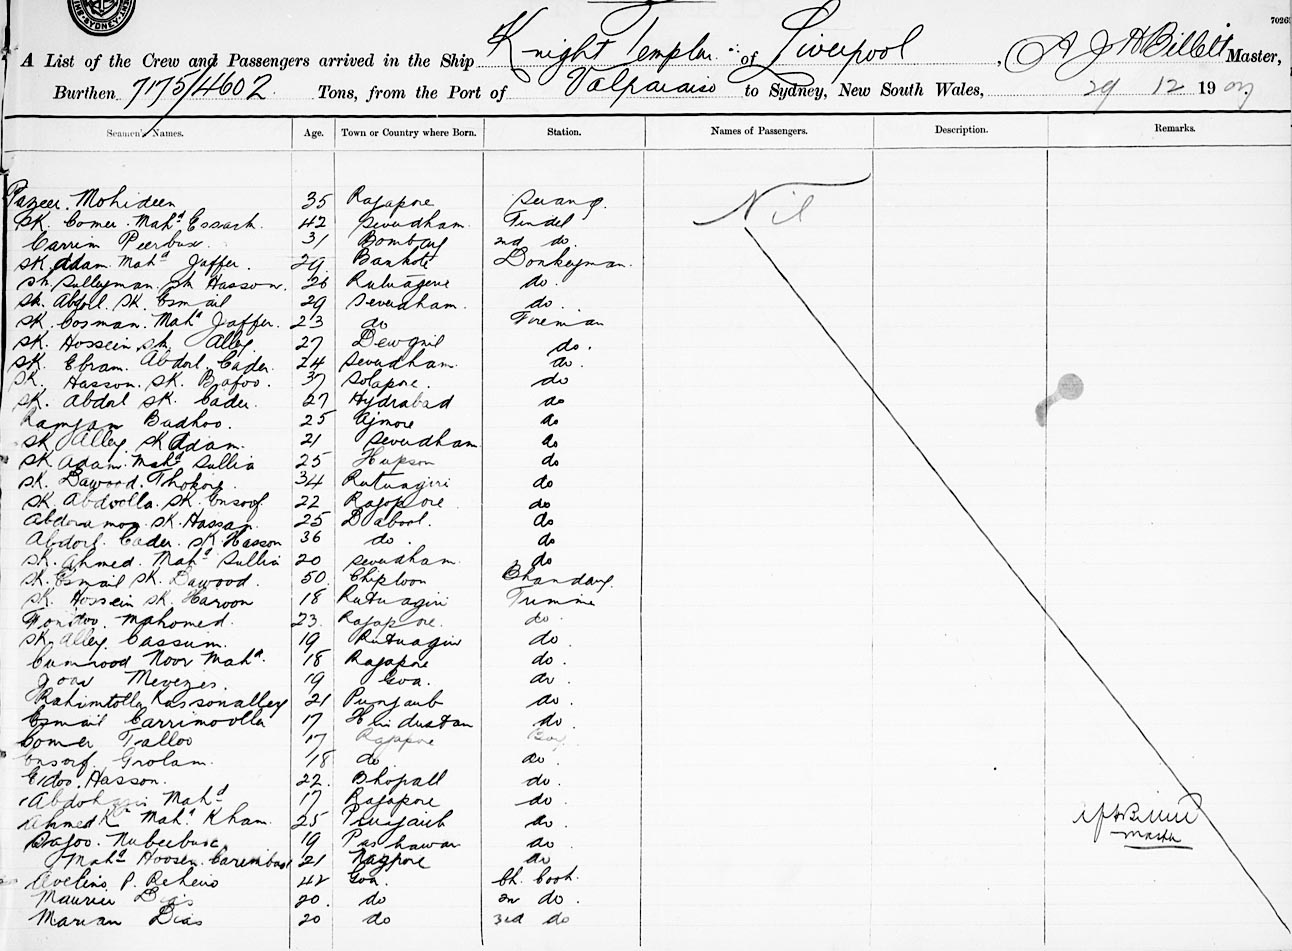 7026
A List of the Crew and Passengers arrived in the Ship Knight Templar of Liverpool, A J H Billett Master,
Burthen 7175/4602 Tons, from the Port of Valparaiso to Sydney, New South Wales, 29 12 19 07
Seamen's Names. Age. Town or Country where Born. Station. Names of Passengers. Description. Remarks.
Mohideen 35 Rajapore Serang. Nil
SK. Comer. Mahd Essack. 42 Severdham Tindel
Carrim Peerbux. 31 Bombay 2nd do.
SK. Adam. Mahd Jaffer. 29 Bankote Donkeyman.
Sk. Sulleyman. Sk Hasson. 26 Rutnagerie do.
Sk. Abdol. SK. Esmail 29 Severdham. do.
SK. Cosman. Mahd Jaffer. 23 do Fireman
SK. Hossein Sk Alley 27 do.
SK. Ebram. Abdol. Cader. 24 Severdham. do.
SK. Hasson. SK. Bafoo. 37 Solapore. do
SK. Abdol SK. Cader. 27 Hydrabad do
Ramjan Badhoo. 25 Ajmore do
SK Alley SK Adam. 21 Severdham do
SK Adam. Mahd Sullia 25 do
SK. Dawood. 34 Rutnagiri do
SK. Abdoolla. SK. Ensoof 22 Rajopore do
SK. Hassan. 25 Dabool. do
Abdol. Cader. SK Hasson 36 do. do
SK. Ahmed. Mahd Sullia 20 Severdham. do
SK. Esmail SK. Dawood. 50. Chiploon Bhandary.
SK. Hossein SK. Haroon 18 Rutnagiri Trimmer
Mahomed. 23. Rajapore. do.
SK. Alley. Cassum. 19 Rutnagiri do.
Noor Mahd. 18 Rajapore do.
Menezes. 19 Goa. do.
Rahimtolla Kassonalley 21 Punjaub do.
Esmail Carrimoolla 17 Hindustan do.
Comer Talloo 17 Rajapore Boy.
Ensoof. Grolam. 18 do. do.
Hasson. 22. Bhopall do.
Mahd 17 Rajapore do.
Ahmed Kn Mahd Kham. 25 Punjaub do. Master
Bafoo. Nubeebux. 19 Pashawar do.
Mahd Hoosen. Carembux 21 Nagpore do
Avelino P. 42 Goa. Ch. Cook.
Dias 20. do 2n do.
Marian Dias 20 do 3rd do